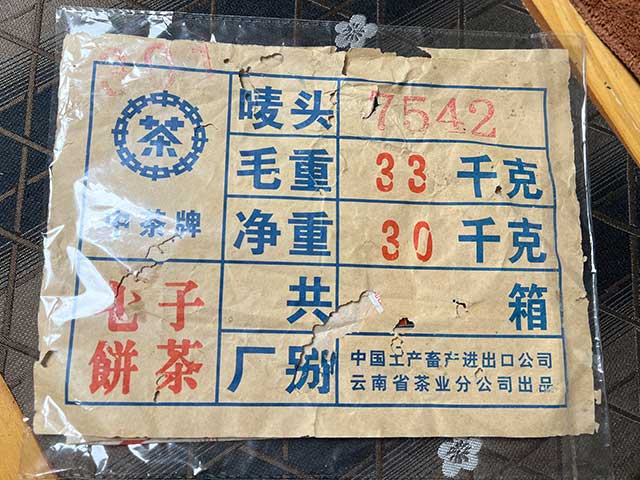 茶
中茶牌
七子
餅茶
唛头 7542
毛重 33 千克
净重 30 千克
共 箱
厂别 中国土产畜产进出口公司
云南省茶业分公司出品